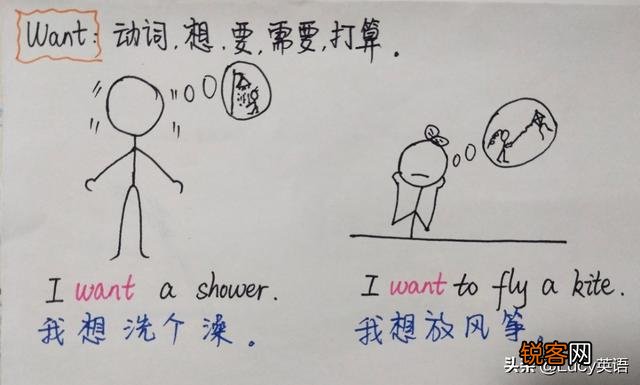 Want: 动词,想,要,需要,打算.
I want a shower.
我想洗个澡。
I want to fly a kite.
我想放风筝。
锐客网
头条 @Lucy英语